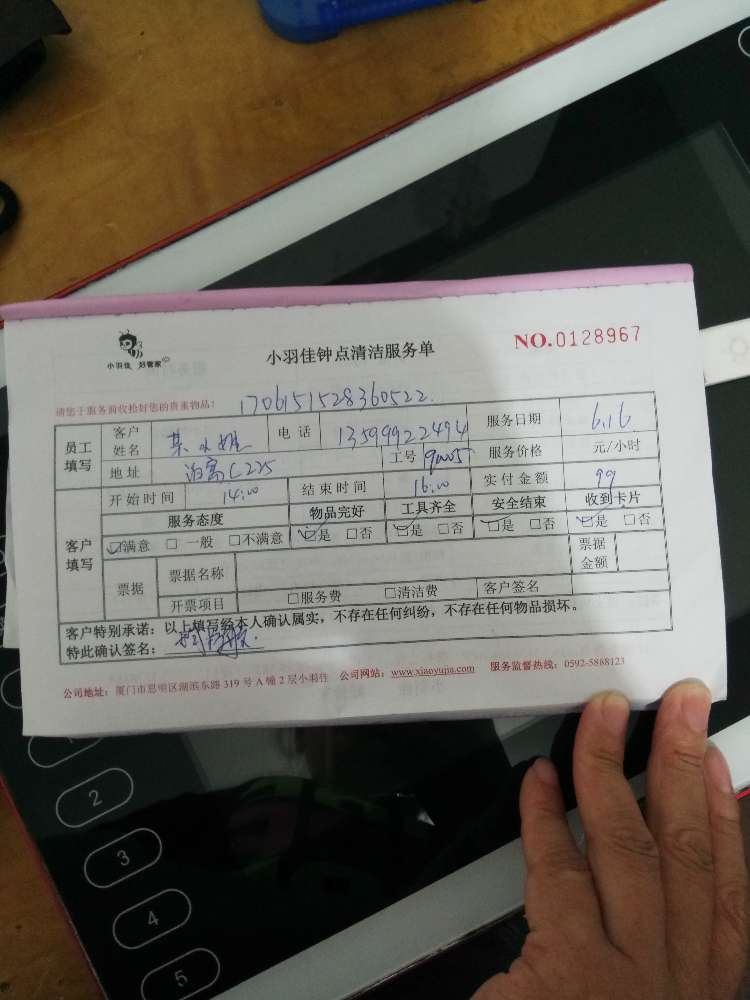 小羽佳 好管家
小羽佳钟点清洁服务单
NO.0128967
请您于服务前收拾好您的贵重物品:
1706151528360522
员工填写 客户姓名 电话 13599922494 服务日期 6.16
地址 C225 工号 90005 服务价格 元/小时
客户填写 开始时间 14:00 结束时间 16:00 实付金额 99
服务态度 物品完好 工具齐全 安全结束 收到卡片
☑满意 □ 一般 □不满意 ☑是 □否 ☑是 □否 ☑是 □否 ☑是 □否
票据 票据名称 票据金额
开票项目 □服务费 □清洁费 客户签名
客户特别承诺:以上填写经本人确认属实,不存在任何纠纷,不存在任何物品损坏。
特此确认签名:
公司地址:厦门市思明区湖滨东路 319 号 A 幢 2 层小羽佳 公司网站:www.xiaoyujia.com 服务监督热线:0592-5888123
1
2
3
4
5